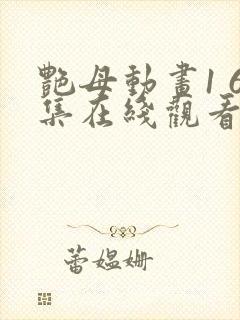 艷母動畫16
集在綫觀看
蕾媼姍